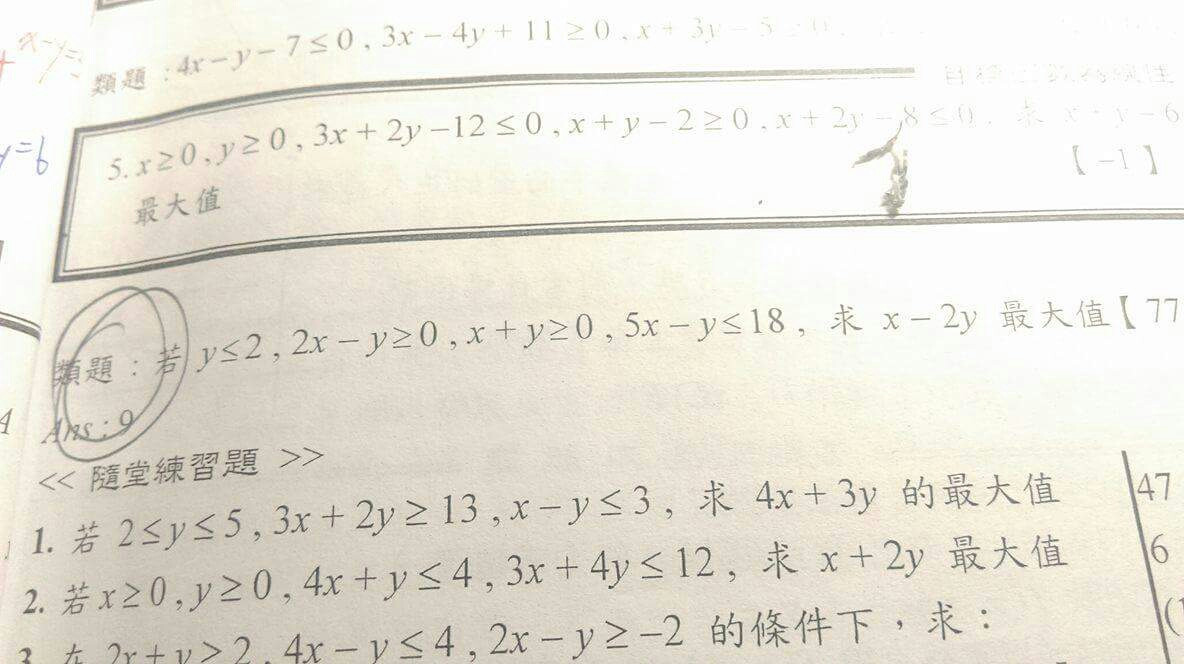 x-y=
類題：4x－y－7≤0，3x－4y＋11≥0，x＋3y－5≥0，
y=6
5. x≥0，y≥0，3x＋2y－12≤0，x＋y－2≥0，x＋2y－8≤0，求 x＋y－6
最大值
【－1】
類題：若 y≤2，2x－y≥0，x＋y≥0，5x－y≤18，求 x－2y 最大值【77
Ans：9
<< 隨堂練習題 >>
1. 若 2≤y≤5，3x＋2y≥13，x－y≤3，求 4x＋3y 的最大值
47
2. 若x≥0，y≥0，4x＋y≤4，3x＋4y≤12，求 x＋2y 最大值
6
3. 在 2x＋y≥2，4x－y≤4，2x－y≥－2 的條件下，求：
(1